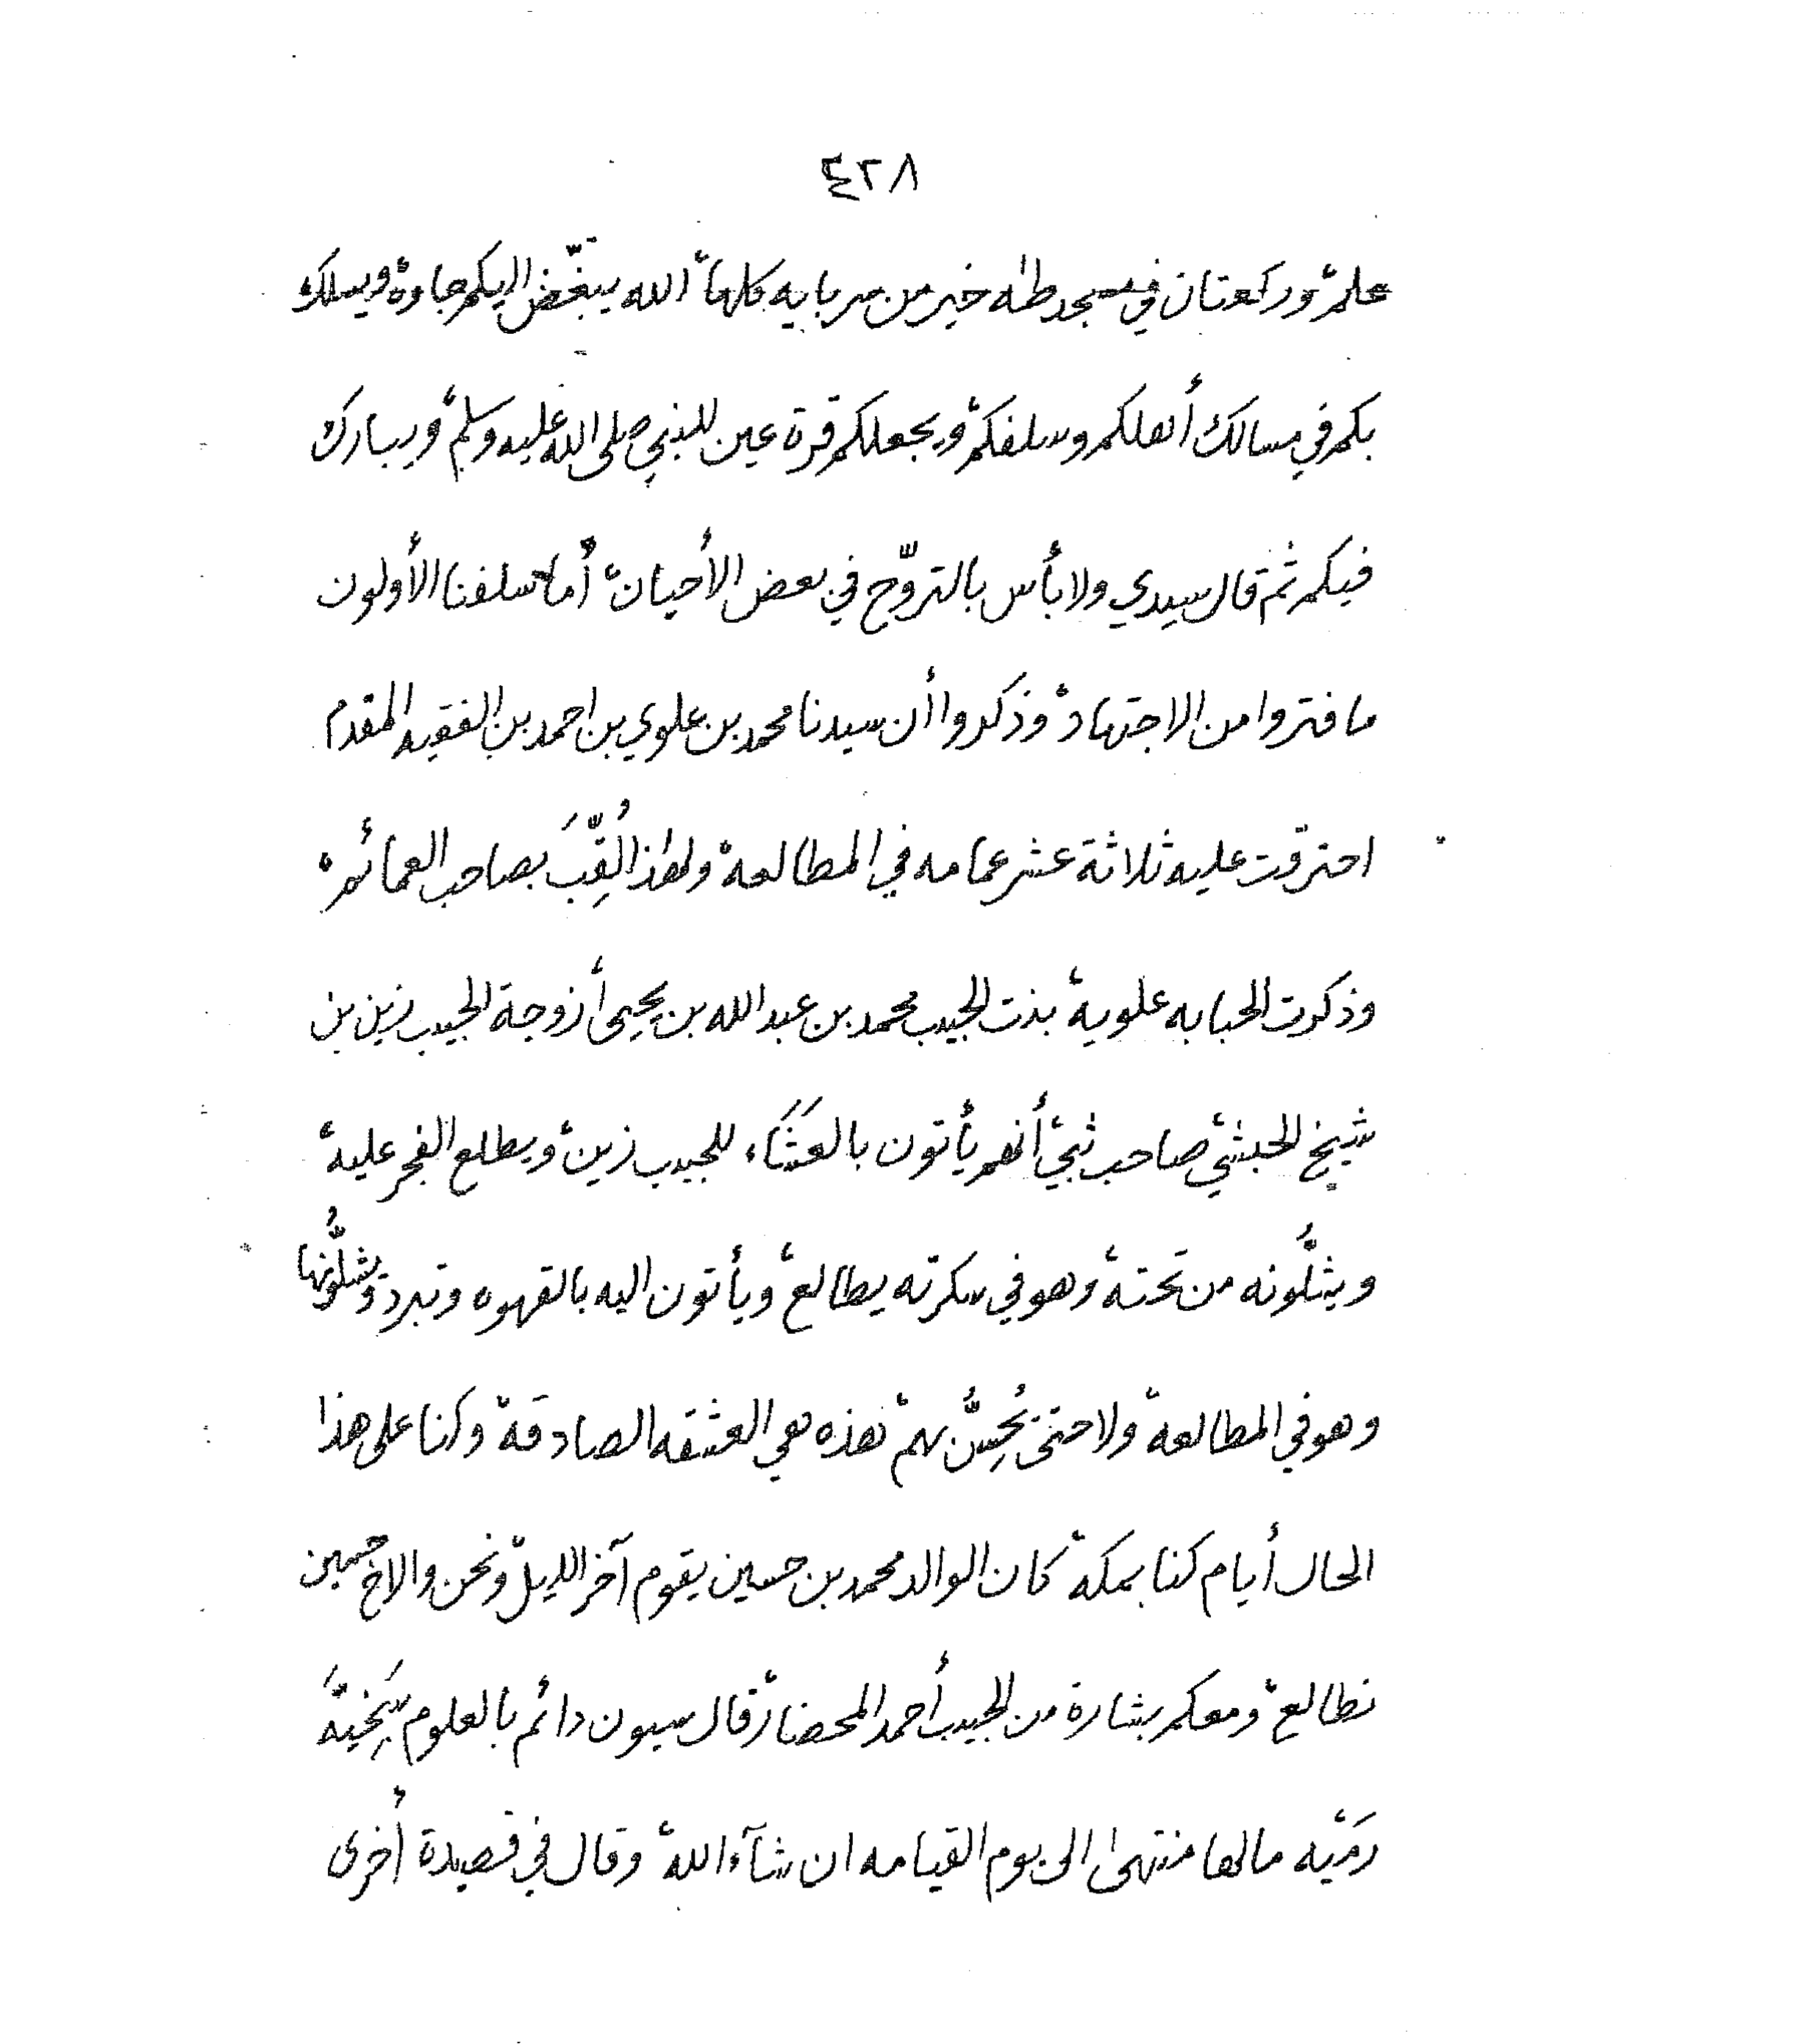 ٤٢٨
علمْ وركعتان في مسجد طه خير من سربايه كلها الله يبغّض اليكم جاوه ويسلك
بكم في مسالك أهلكم وسلفكم ويجعلكم قرة عين للنبي صلى الله عليه وسلم ويبارك
فيكم ثم قال سيدي ولا بأس بالتروّح في بعض الأحيان أما سلفنا الأولون
ما فتروا من الاجتهاد وذكروا أن سيدنا محمد بن علوي بن احمد بن الفقيه المقدم
احترقت عليه ثلاثة عشر عمامه في المطالعة ولهذا لُقِّبَ بصاحب العمائم
وذكرت الحبابه علوية بنت الحبيب محمد بن عبدالله بن يحيى زوجة الحبيب زين بن
شيخ الحبشي صاحب ثبي أنهم يأتون بالعَشَاء للحبيب زين ويطلع الفجر عليه
ويشلُّونه من تحته وهو في سكرته يطالع ويأتون اليه بالقهوه وتبرد ويشلُّونها
وهو في المطالعة ولا حتى يُحِسُّ بهم هذه هي العشقه الصادقة وكنا على هذا
الحال أيام كنا بمكة كان الوالد محمد بن حسين يقوم آخر الليل ونحن والاخ حسين
نطالع ومعكم بشارة من الحبيب أحمد المحضار قال سيون دائم بالعلوم سَخِيَّهْ
رَمَيْه مالها منتهى الى يوم القيامه ان شآء الله وقال في قصيدة أخرى